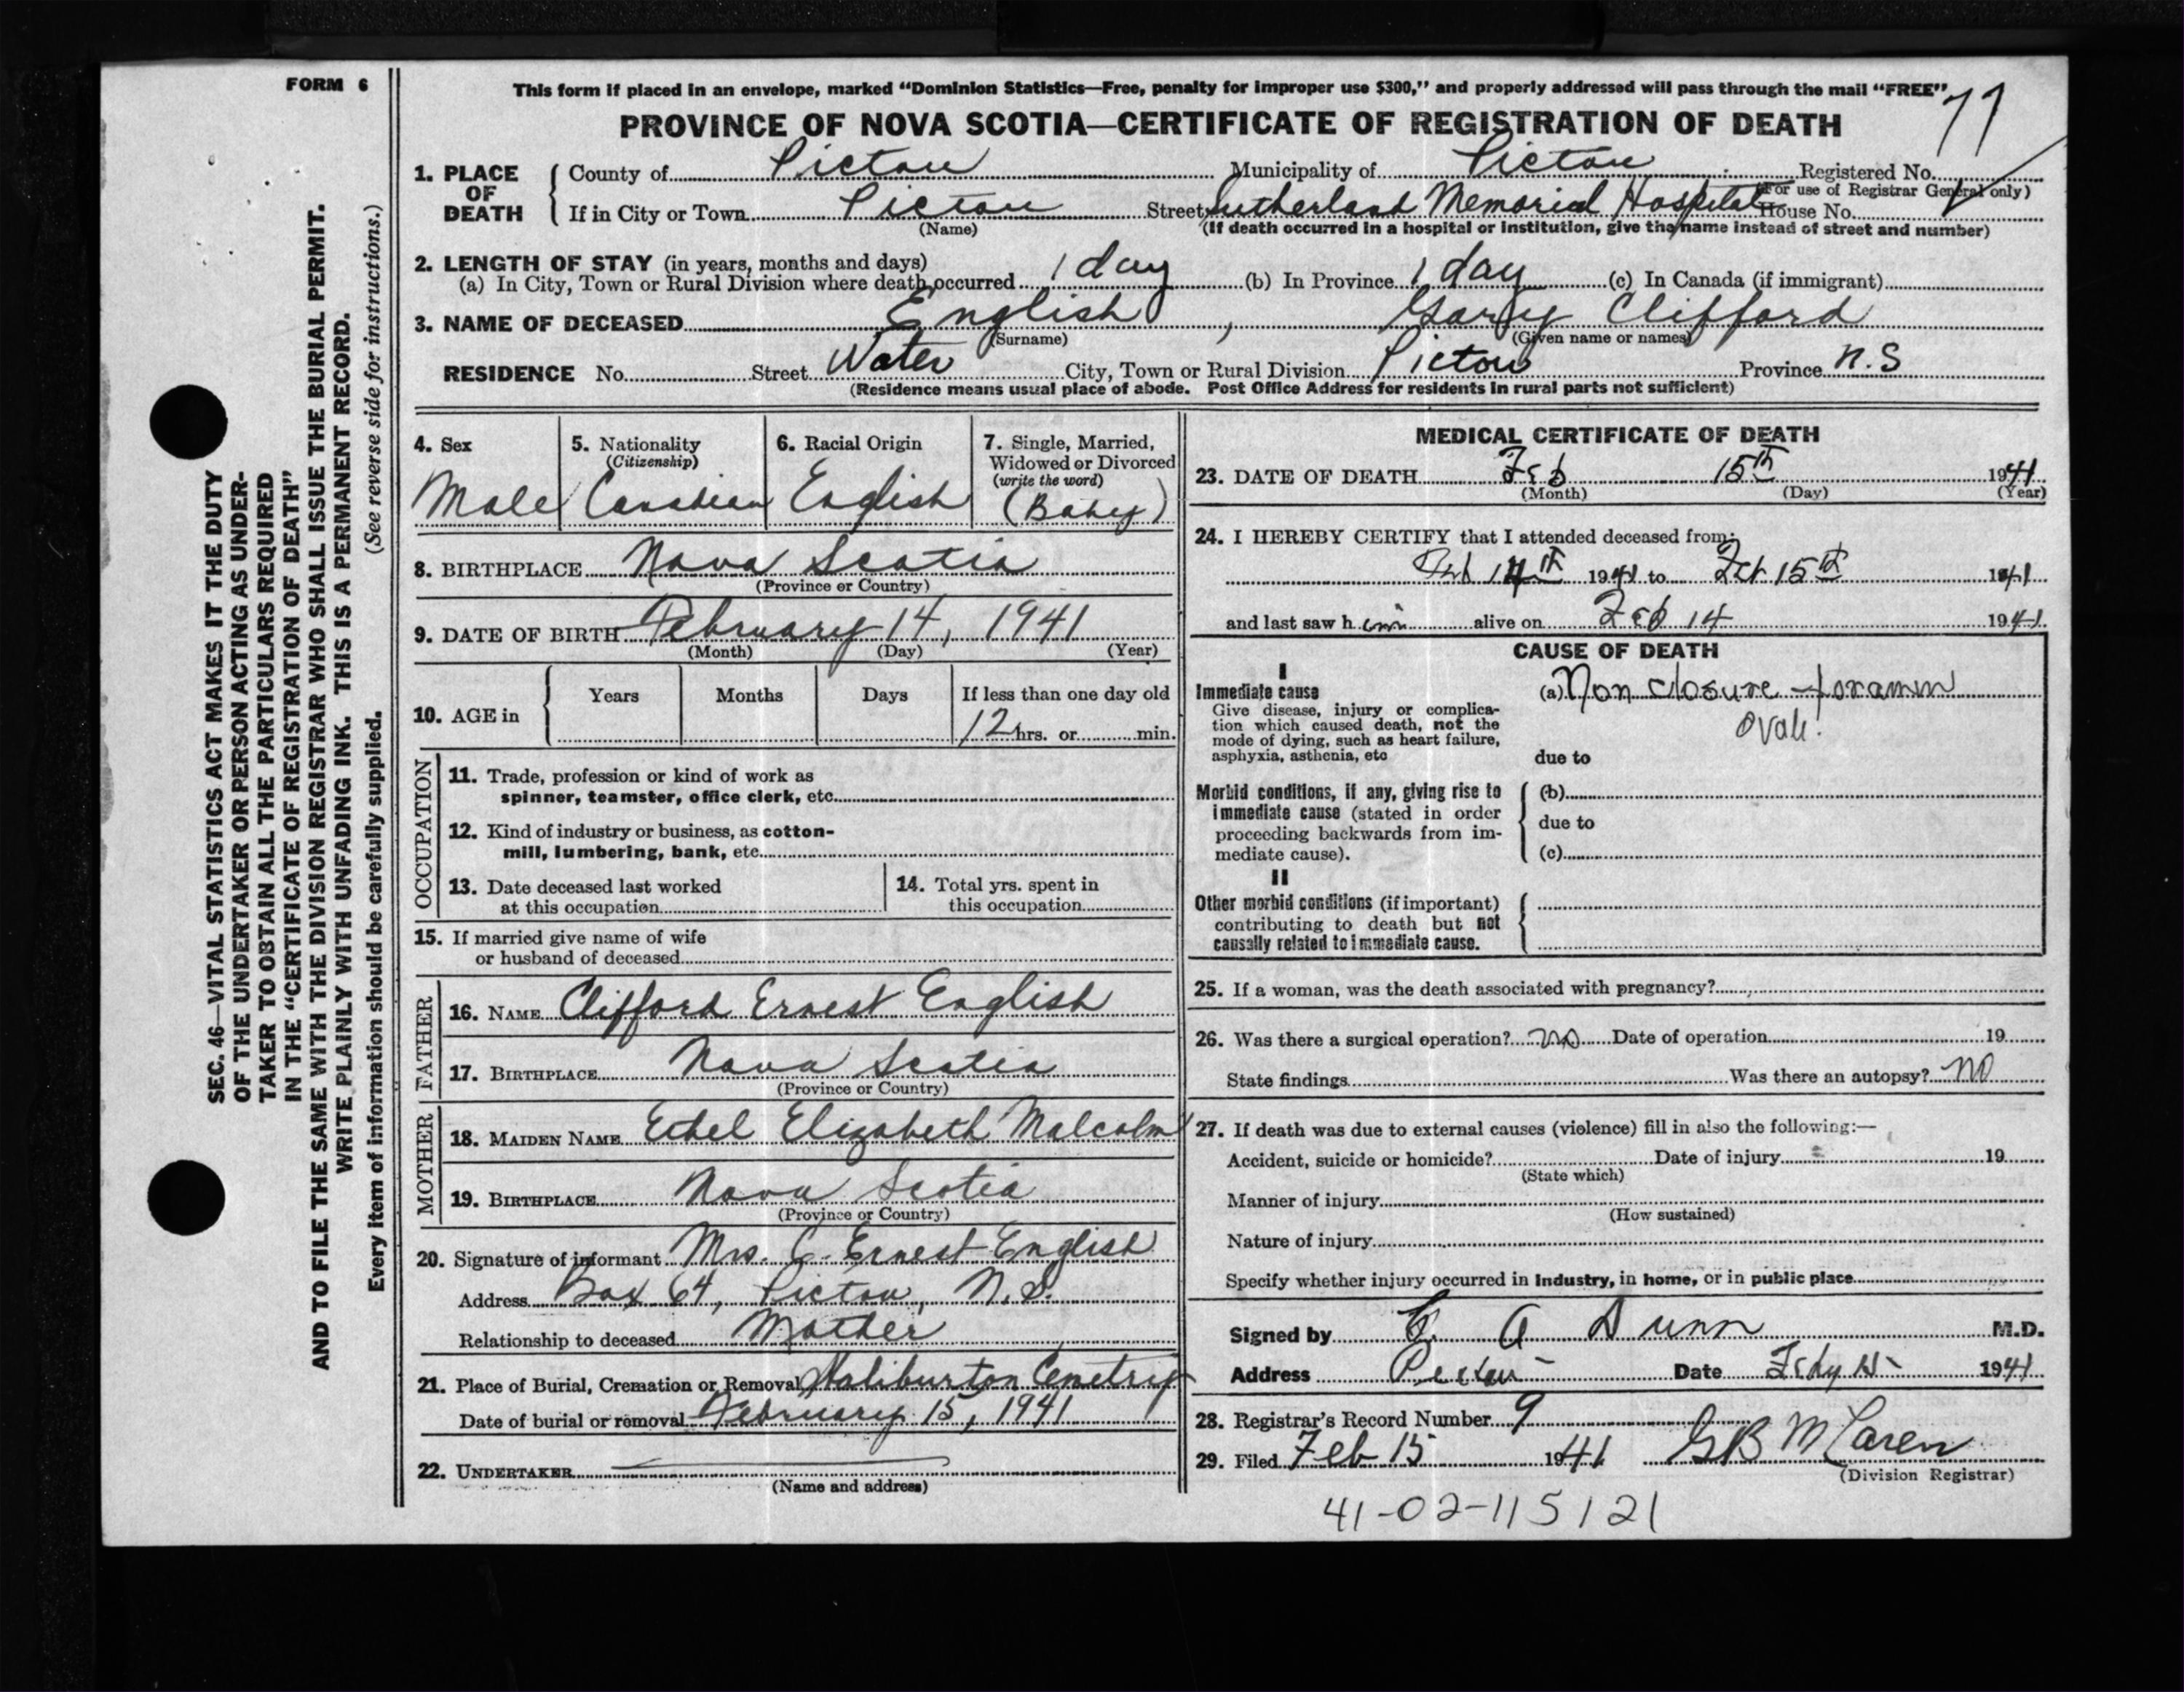 FORM 6
This form if placed in an envelope, marked “Dominion Statistics—Free, penalty for improper use $300,” and properly addressed will pass through the mail “FREE”
PROVINCE OF NOVA SCOTIA—CERTIFICATE OF REGISTRATION OF DEATH
1. PLACE OF DEATH
County of Pictou Municipality of Pictou Registered No.
(For use of Registrar General only)
If in City or Town Pictou Street Sutherland Memorial Hospital House No.
(Name) (If death occurred in a hospital or institution, give the name instead of street and number)
2. LENGTH OF STAY (in years, months and days)
(a) In City, Town or Rural Division where death occurred 1 day (b) In Province 1 day (c) In Canada (if immigrant)
3. NAME OF DECEASED English, Garry Clifford
(Surname) (Given name or names)
RESIDENCE No. Street Water City, Town or Rural Division Pictou Province N.S
(Residence means usual place of abode. Post Office Address for residents in rural parts not sufficient)
4. Sex
Male
5. Nationality
(Citizenship)
Canadian
6. Racial Origin
English
7. Single, Married,
Widowed or Divorced
(write the word)
(Baby)
8. BIRTHPLACE Nova Scotia
(Province or Country)
9. DATE OF BIRTH February 14, 1941
(Month) (Day) (Year)
10. AGE in
Years Months Days If less than one day old
12 hrs. or min.
OCCUPATION
11. Trade, profession or kind of work as
spinner, teamster, office clerk, etc.
12. Kind of industry or business, as cotton-
mill, lumbering, bank, etc.
13. Date deceased last worked
at this occupation
14. Total yrs. spent in
this occupation
15. If married give name of wife
or husband of deceased
FATHER
16. NAME Clifford Ernest English
17. BIRTHPLACE Nova Scotia
(Province or Country)
MOTHER
18. MAIDEN NAME Ethel Elizabeth Malcolm
19. BIRTHPLACE Nova Scotia
(Province or Country)
20. Signature of informant Mrs. C. Ernest English
Address Box 64, Pictou, N.S.
Relationship to deceased Mother
21. Place of Burial, Cremation or Removal Haliburton Cemetry
Date of burial or removal February 15, 1941
22. UNDERTAKER
(Name and address)
MEDICAL CERTIFICATE OF DEATH
23. DATE OF DEATH Feb 15th 1941
(Month) (Day) (Year)
24. I HEREBY CERTIFY that I attended deceased from:
Feb 14th 1941 to Feb 15th 1941
and last saw him alive on Feb 14 1941
CAUSE OF DEATH
I
Immediate cause
Give disease, injury or complica-
tion which caused death, not the
mode of dying, such as heart failure,
asphyxia, asthenia, etc
(a) Non closure foramen
ovale.
due to
Morbid conditions, if any, giving rise to
immediate cause (stated in order
proceeding backwards from im-
mediate cause).
(b)
due to
(c)
II
Other morbid conditions (if important)
contributing to death but not
causally related to immediate cause.
25. If a woman, was the death associated with pregnancy?
26. Was there a surgical operation? no Date of operation 19
State findings Was there an autopsy? no
27. If death was due to external causes (violence) fill in also the following:—
Accident, suicide or homicide? Date of injury 19
(State which)
Manner of injury
(How sustained)
Nature of injury
Specify whether injury occurred in industry, in home, or in public place
Signed by A Dunn M.D.
Address Pictou Date Feby 15 1941
28. Registrar's Record Number 9
29. Filed Feb 15 1941 GB McLaren
(Division Registrar)
41-02-115121
SEC. 46—VITAL STATISTICS ACT MAKES IT THE DUTY
OF THE UNDERTAKER OR PERSON ACTING AS UNDER-
TAKER TO OBTAIN ALL THE PARTICULARS REQUIRED
IN THE “CERTIFICATE OF REGISTRATION OF DEATH”
AND TO FILE THE SAME WITH THE DIVISION REGISTRAR WHO SHALL ISSUE THE BURIAL PERMIT.
WRITE PLAINLY WITH UNFADING INK. THIS IS A PERMANENT RECORD.
Every item of information should be carefully supplied. (See reverse side for instructions.)